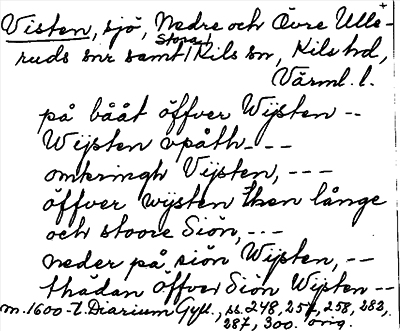 Visten, sjö, Nedre och Övre Ulle-
ruds snr samt Stora Kils sn, Kils hd,
Värml. l.
på bååt öffver Wijsten --
Wijsten vpåth---
omkringh Vijsten, ---
öffver wijsten then långe
och stoore Siön, ---
neder på siön Wijsten, --
thädan öffver Siön Wijsten --
m. 1600-t. Diarium Gyll., ss. 248, 257, 258, 282,
287, 300. orig.